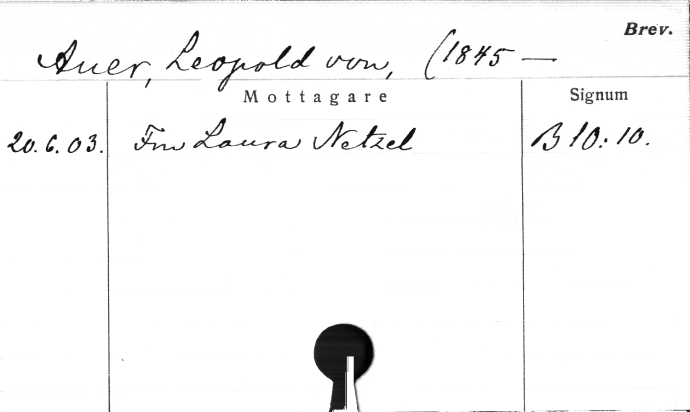 Brev.
Auer, Leopold von, (1845 —
Mottagare Signum
20.6.03. Fru Laura Netzel B 10:10.